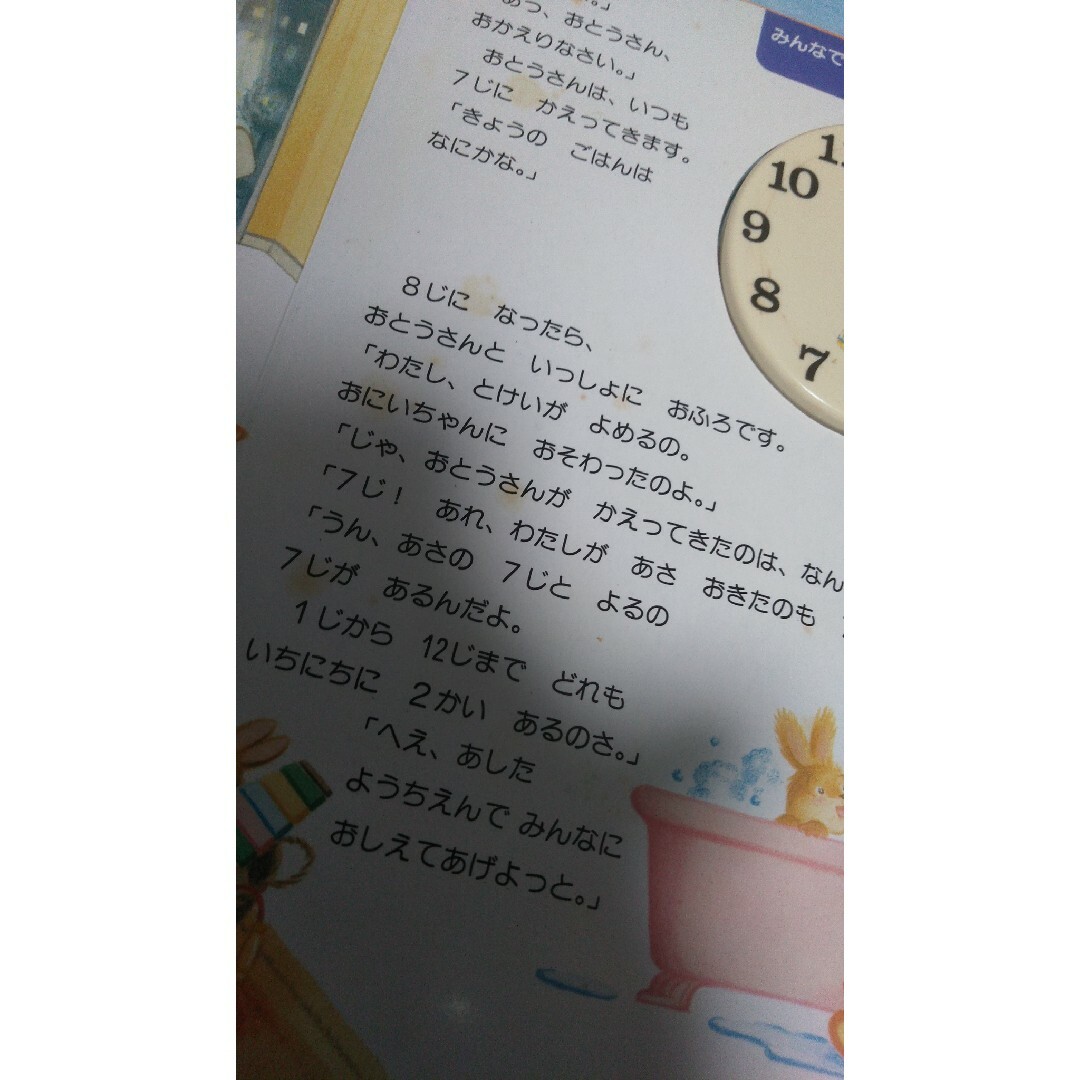 「あっ、おとうさん、
おかえりなさい。」
おとうさんは、いつも
7じに かえってきます。
「きょうの ごはんは
なにかな。」
8じに なったら、
おとうさんと いっしょに おふろです。
「わたし、とけいが よめるの。
おにいちゃんに おそわったのよ。」
「じゃ、おとうさんが かえってきたのは、なん
「7じ! あれ、わたしが あさ おきたのも
「うん、あさの 7じと よるの
7じが あるんだよ。
1じから 12じまで どれも
いちにちに 2かい あるのさ。」
「へえ、あした
ようちえんで みんなに
おしえてあげよっと。」
みんなで
10
9
8
7